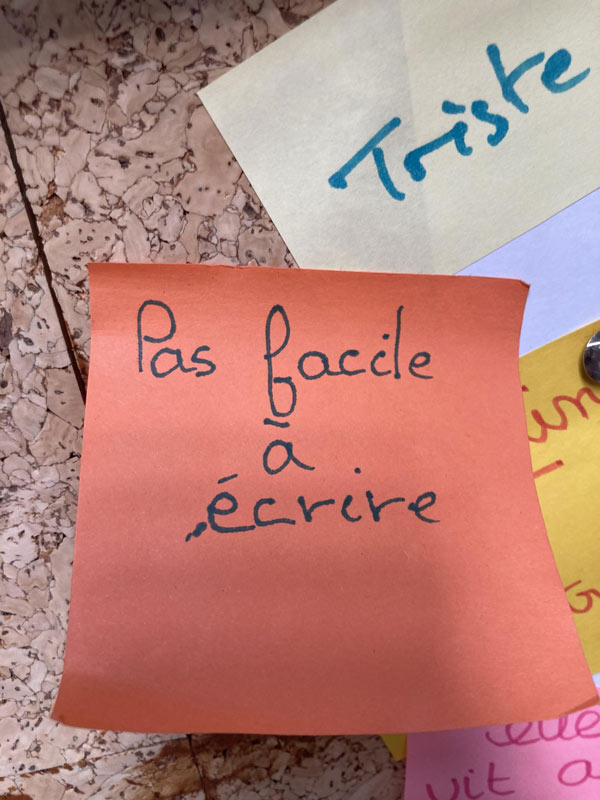 Triste
Pas facile
à
écrire
vit a